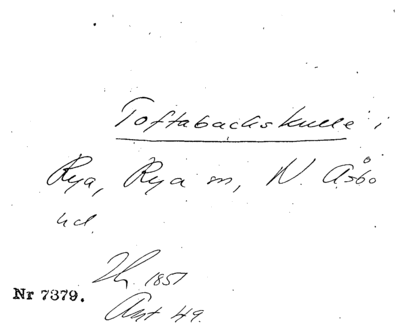 Toftabackskulle i
Rya, Rya sn, N. Åsbo
hd.
Th. 1851
Nr 7379.
Ant 49.